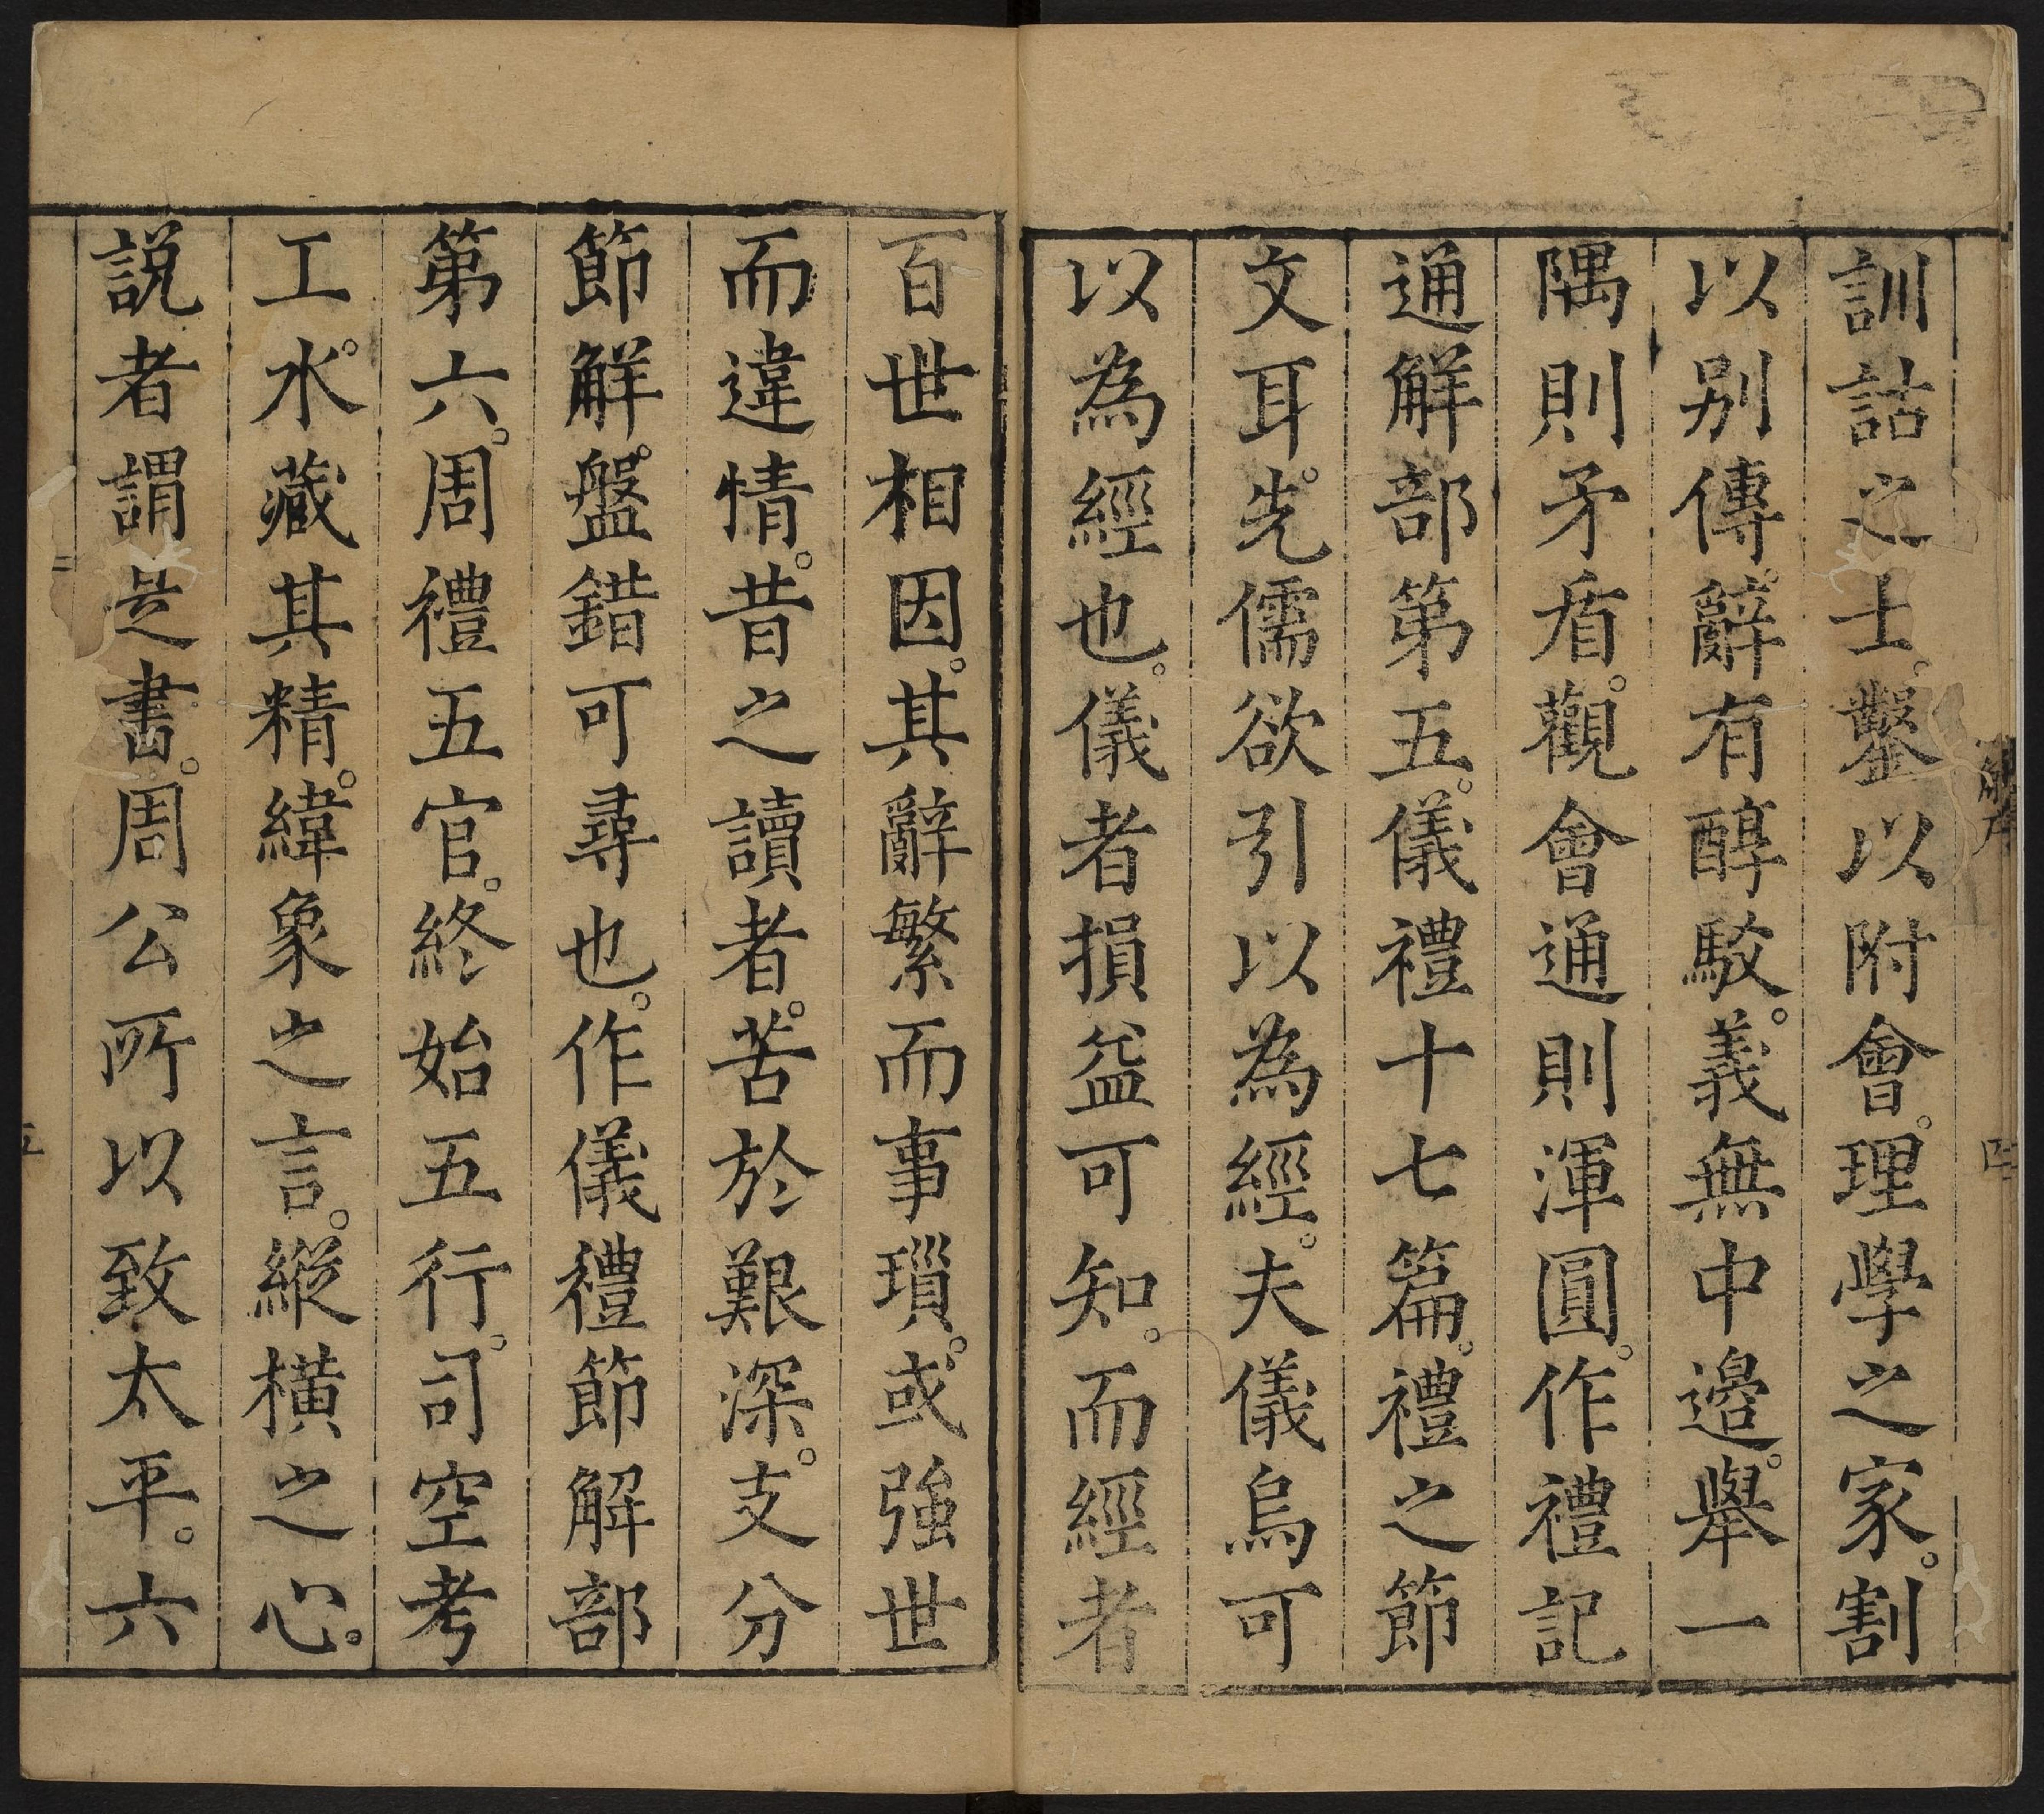 訓詁之士。鑿以附會。理學之家。割
以别傳。辭有醇駁。義無中邉。舉一
隅則矛盾。觀會通則渾圓。作禮記
通解部第五。儀禮十七篇。禮之節
文耳。先儒欲引以為經。夫儀烏可
以為經也。儀者損益可知。而經者
百世相因。其辭繁而事瑣。或強世
而違情。昔之讀者。苦於艱深。支分
節解。盤錯可尋也。作儀禮節解部
第六。周禮五官。終始五行。司空考
工。水藏其精。緯象之言。縱橫之心。
説者謂是書。周公所以致太平。六